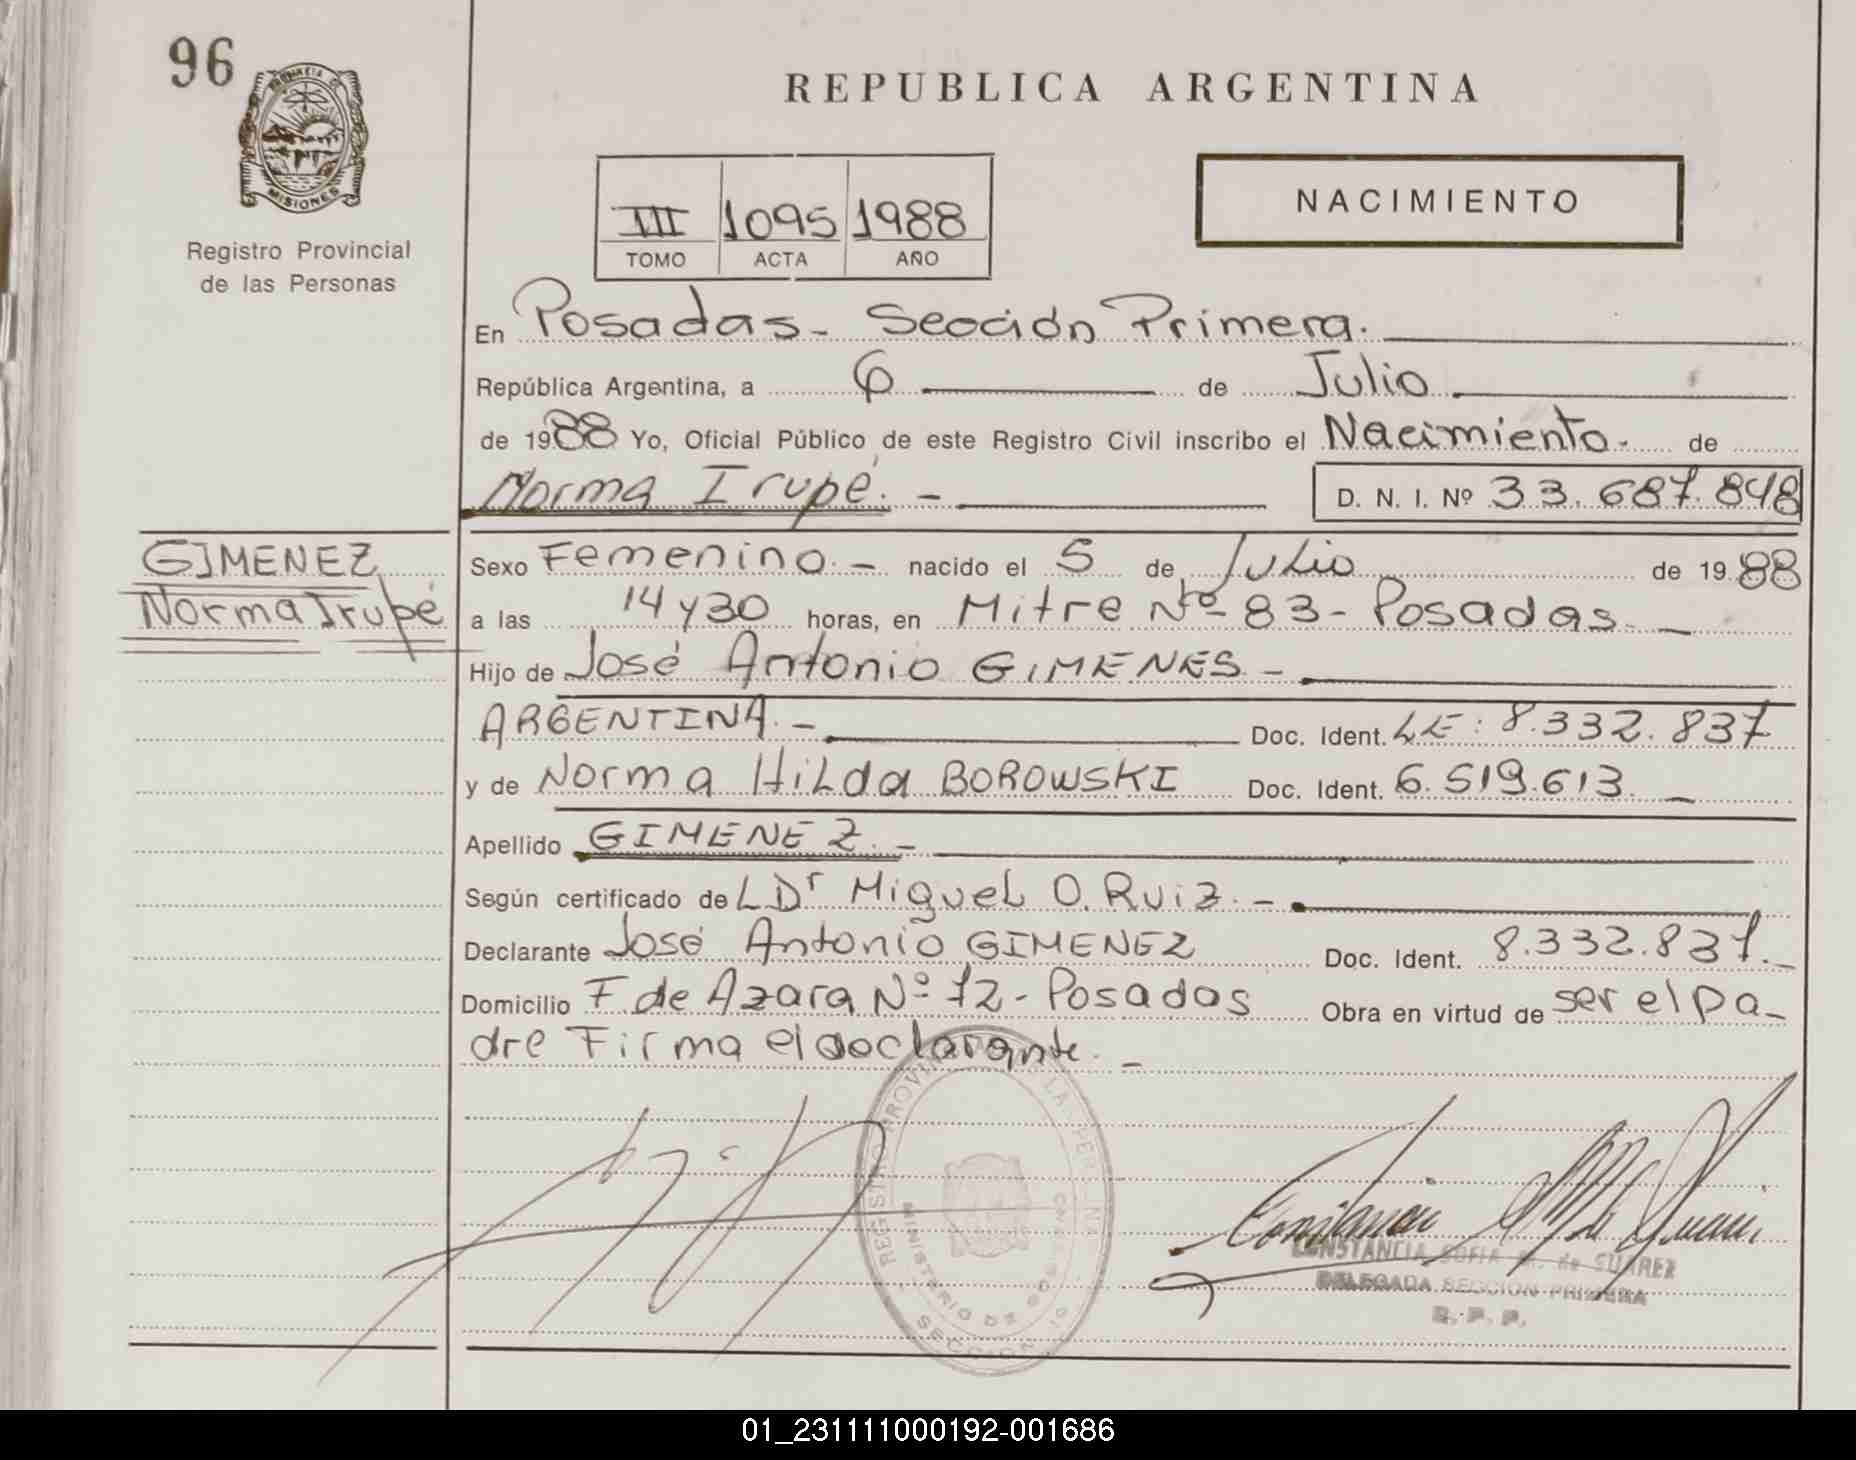 96
PROVINCIA DE
MISIONES
Registro Provincial
de las Personas
REPUBLICA ARGENTINA
III 1095 1988
TOMO ACTA AÑO
NACIMIENTO
En Posadas - Sección Primera.
República Argentina, a 6 de Julio
de 1988 Yo, Oficial Público de este Registro Civil inscribo el Nacimiento. de
Norma Irupé. - D. N. I. Nº 33.687.848
GIMENEZ
Norma Irupé
Sexo Femenino. - nacido el 5 de Julio de 1988
a las 14 y 30 horas, en Mitre Nº 83 - Posadas. -
Hijo de José Antonio GIMENES -
ARGENTINA. - Doc. Ident. LE: 8.332.837
y de Norma Hilda BOROWSKI Doc. Ident. 6.519.613. -
Apellido GIMENEZ. -
Según certificado de L Dr Miguel O. Ruiz. -
Declarante José Antonio GIMENEZ Doc. Ident. 8.332.837. -
Domicilio F. de Azara Nº 12 - Posadas Obra en virtud de ser el pa-
dre Firma el declarante. -
REGISTRO PROVINCIAL DE LAS PERSONAS
MINISTERIO DE GOBIERNO
SECCION
CONSTANCIA SOFIA M. de SUAREZ
DELEGADA SECCION PRIMERA
R. P. P.
01_231111000192-001686